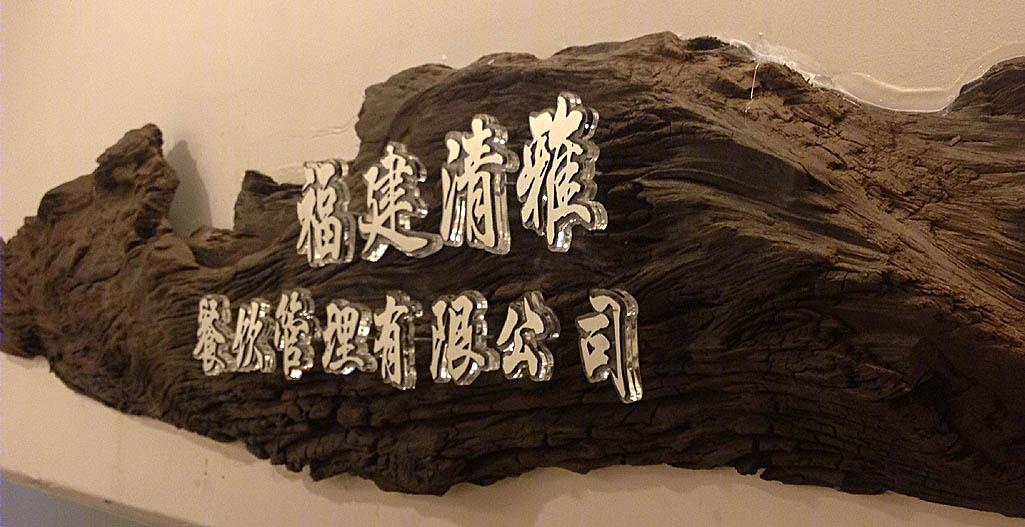 福建清雅
餐饮管理有限公司